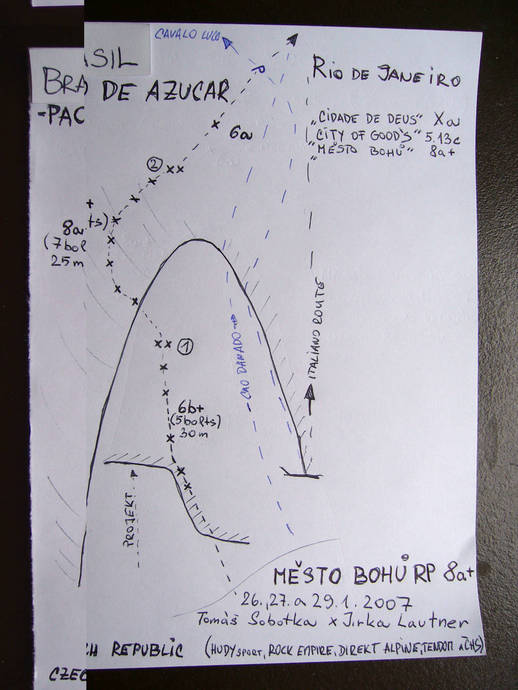 CAVALO LUCO
ASIL
BRA DE AZUCAR
-PAC
RIO DE JANEIRO
"CIDADE DE DEUS" Xa
"CITY OF GOOD'S" 5.13c
"MĚSTO BOHŮ" 8a+
6a
2
+
8a ts)
(7bol
25m
1
6b+
(5bolts)
30m
CAO DANADO
ITALIANO ROUTE
PROJEKT
MĚSTO BOHŮ RP 8a+
26., 27. a 29.1. 2007
Tomáš Sobotka x Jirka Lautner
CH REPUBLIC (HUDY SPORT, ROCK EMPIRE, DIREKT ALPINE, TENDON a ČHS)
CZEC